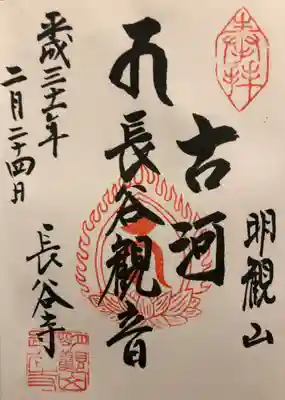 奉拝
明觀山
古河
長谷觀音
平成三十一年
二月二十四日
長谷寺